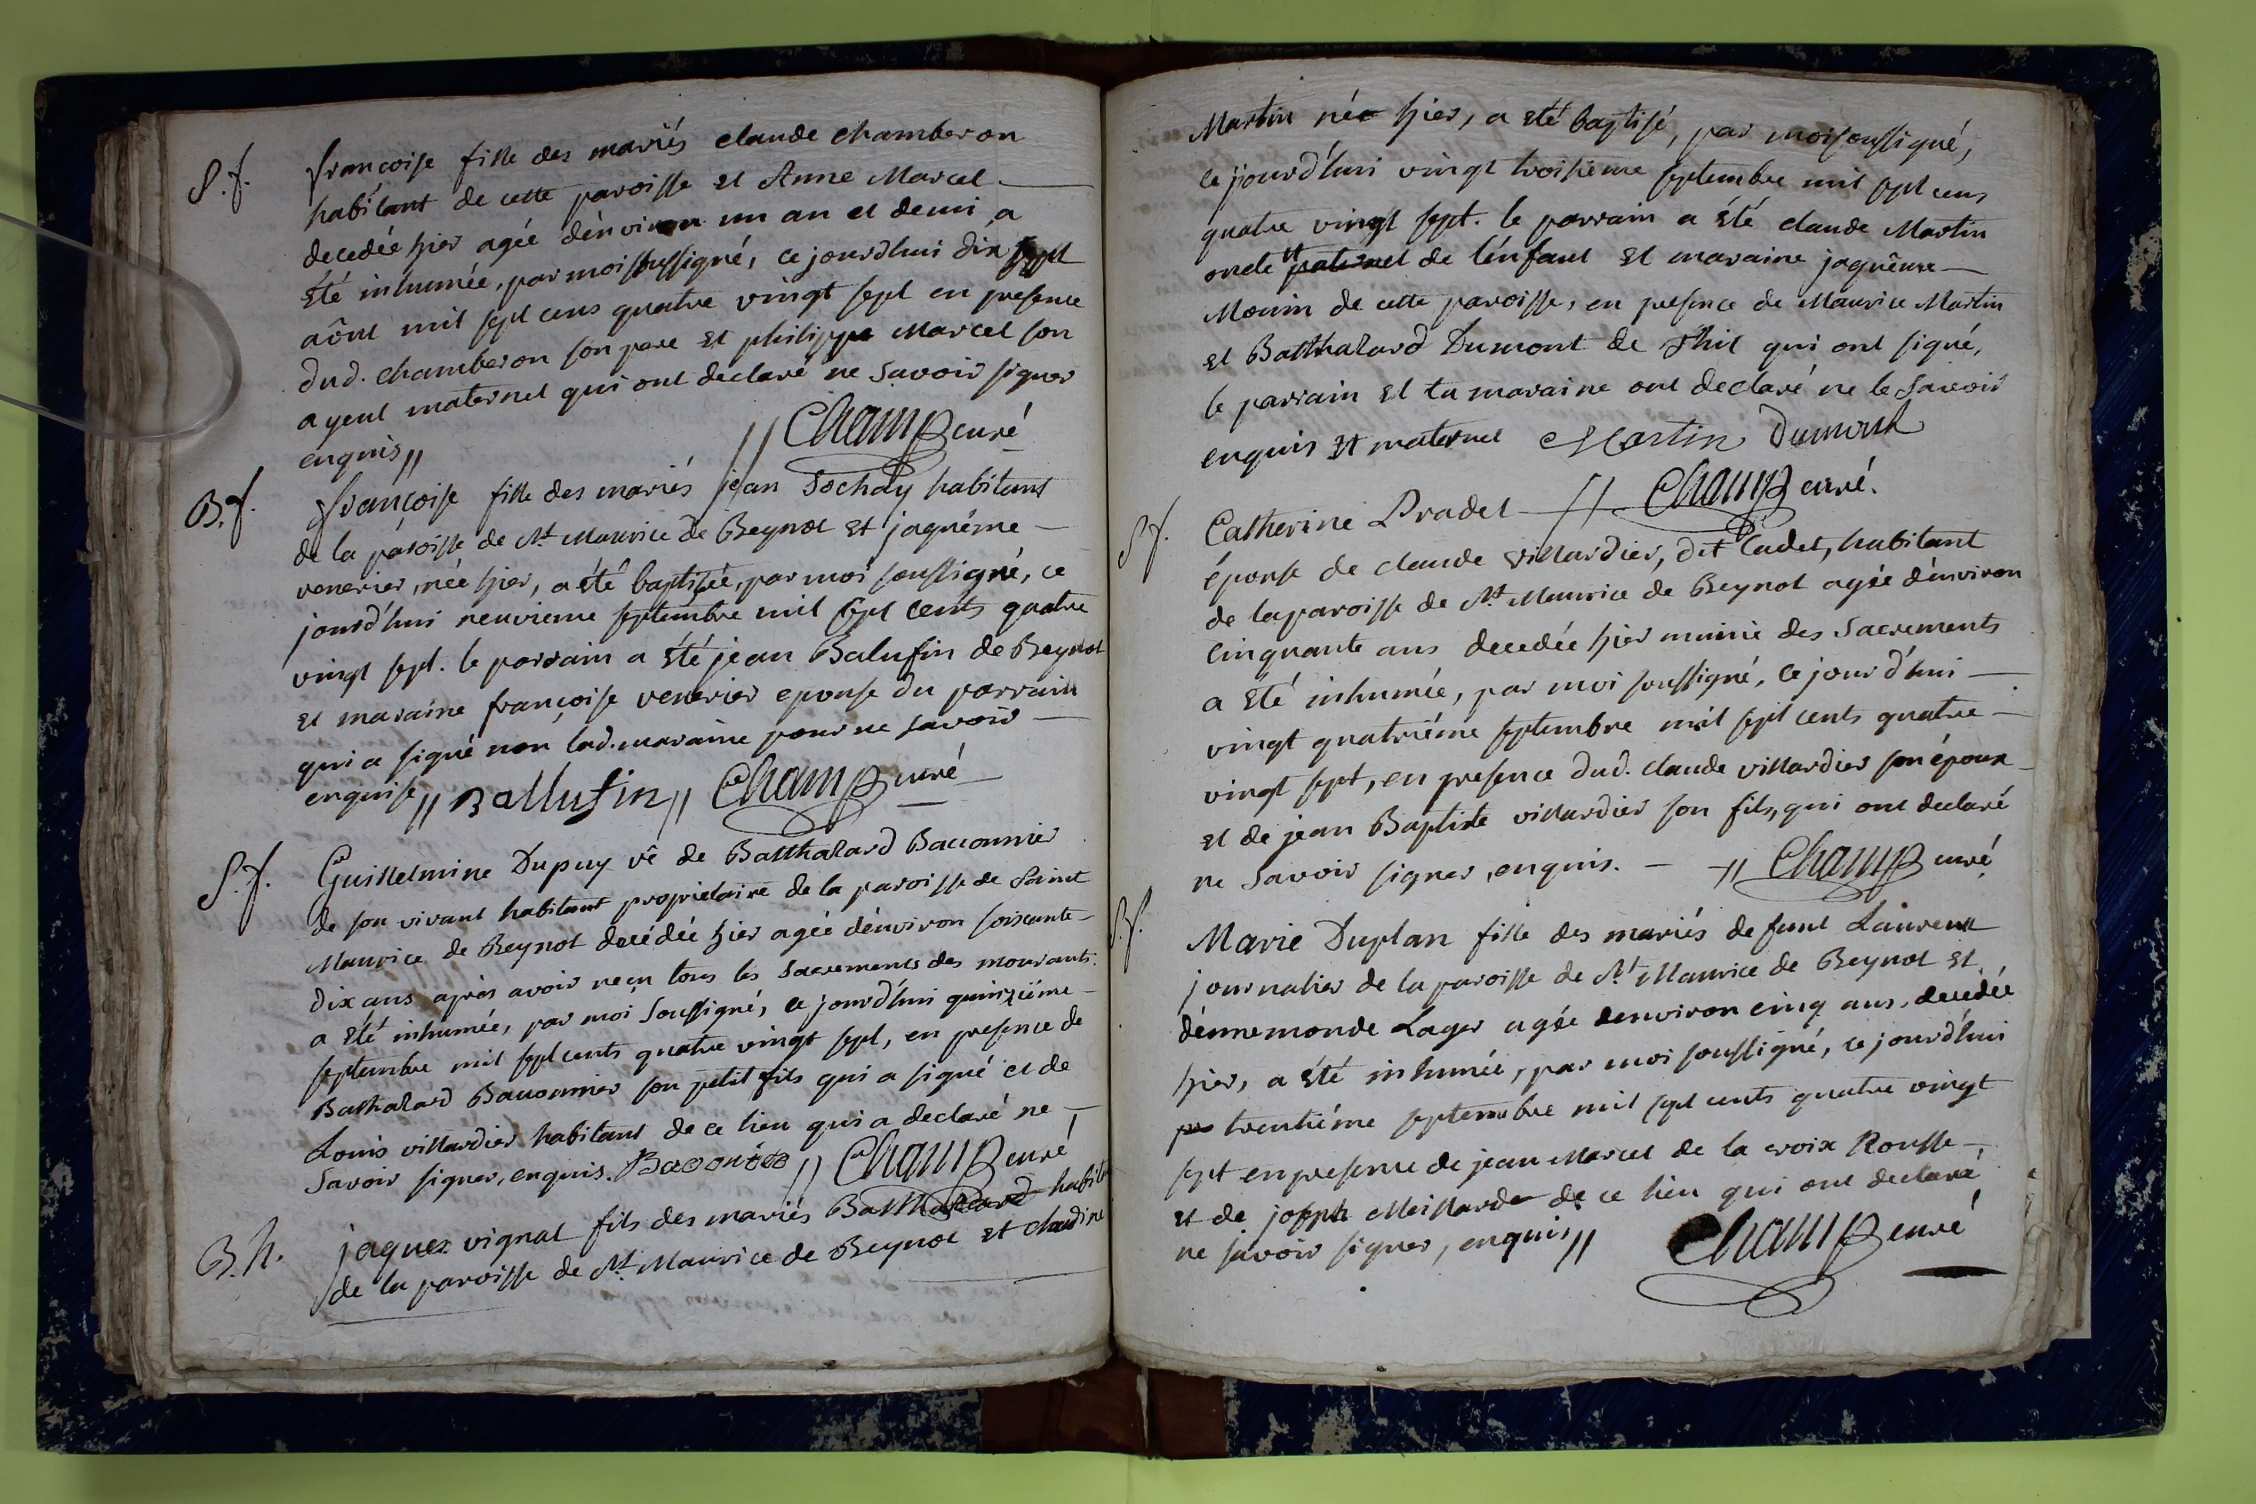 S. f. françoise fille des mariés claude chamberon
habitant de cette paroisse et Anne Marcel
decedée hier agée d'environ un an et demi a
été inhumée, par moi soussigné, ce jourd'hui dix sept
aôut mil sept cens quatre vingt sept en presence
dud. chamberon son pere et philippe Marcel son
ayeul maternel qui ont declaré ne savoir signer
enquis // // Champ curé
B. f. françoise fille des mariés jean Sochay habitant
de la paroisse de St. Maurice de Beynot et jaquéme
venerier, née hier, a été baptisée, par moi soussigné, ce
jourd'hui neuvieme septembre mil sept cents quatre
vingt sept. le parrain a été jean Balufin de Beynot
et maraine françoise venerier epouse du parrain
qui a signé non lad. maraine pour ne savoir
enquise // Ballufin // Champ curé
S. f. Guillelmine Dupuy vê de Batthazard Baconnier
de son vivant habitant proprietaire de la paroisse de Saint
Maurice de Beynot decédée hier agée d'environ soixante
dix ans après avoir reçu tous les Sacrements des mourants
a été inhumée, par moi soussigné, ce jourd'hui quinziéme
septembre mil sept cents quatre vingt sept, en presence de
Balthazard Baconnier son petit fils qui a signé et de
Louis villardier habitant de ce lieu qui a declaré ne
savoir signer, enquis. // Champ curé
B. h. jaques vignat fils des mariés Batthazard habitant
de la paroisse de St. Maurice de Beynot et claudine
Martin née hier, a été baptisé, par moi soussigné,
ce jourd'hui vingt troisième septembre mil sept cens
quatre vingt sept. le parrain a été claude Martin
oncle paternel de l'énfant et maraine jaquême
Monin de cette paroisse, en presence de Maurice Martin
et Batthazard Dumont de Thil qui ont signé,
le parrain et la maraine ont declaré ne le savoir
enquis et maternel Martin Dumont
// Champ curé.
S f. Catherine Pradel
épouse de claude villardier, dit Cadet, habitant
de la paroisse de St. Maurice de Beynot agée d'environ
cinquante ans decedée hier munie des Sacrements
a été inhumée, par moi soussigné, ce jour d'hui
vingt quatriéme septembre mil sept cents quatre
vingt sept, en presence dud. claude villardier son époux
et de jean Baptiste villardier son fils, qui ont declaré
ne savoir signer, enquis. // Champ curé
S. f. Marie Duplan fille des mariés defunt Laurent
journalier de la paroisse de St. Maurice de Beynot et
d'énnemonde Lager agée denviron cinq ans, decedée
hier, a été inhumée, par moi soussigné, ce jourd'hui
trentiéme septembre mil sept cents quatre vingt
sept en presence de jean Marcel de la croix Rousse
et de joseph Meillard de ce lieu qui ont declaré
ne savoir signer, enquis // Champ curé